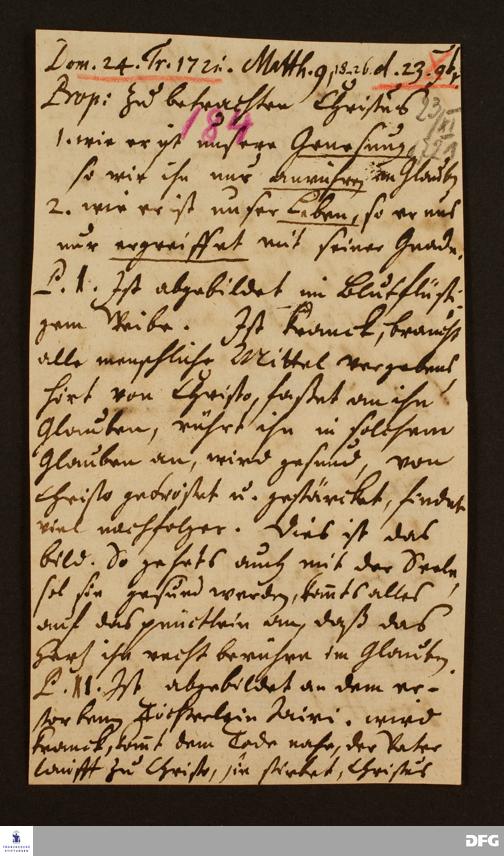 Dom. 24. Tr. 1721. Matth. 9, 18-26. d. 23. 9br.
Prop: zu betrachten Christus
23/XI 1721
184
1. wie er ist unsere Genesung,
so wir ihn nur anrühren im Glauben
2. wie er ist unser Leben, so er uns
nur ergreiffet mit seiner Gnade.
P. I. Ist abgebildet im Blutflüßi-
gem Weibe. Ist kranck, braucht
alle menschliche Mittel vergebens
hört von Christo, faßet an ihn
Glauben, rührt ihn in solchem
Glauben an, wird gesund, von
Christo getröstet u. gestärcket, findet
viel nachfolger. Dies ist das
bild. So gehets auch mit der Seele,
sol sie gesund werden, komts alles
auf das pünctlein an, daß das
Hertz ihn recht berühre im Glauben.
P. II. Ist abgebildet an dem ver-
storbenen Töchterlein Jairi. wird
kranck, komt dem Tode nahe, der Vater
laufft zu Christo, sie stirbet, Christus
FRANCKESCHE STIFTUNGEN
DFG